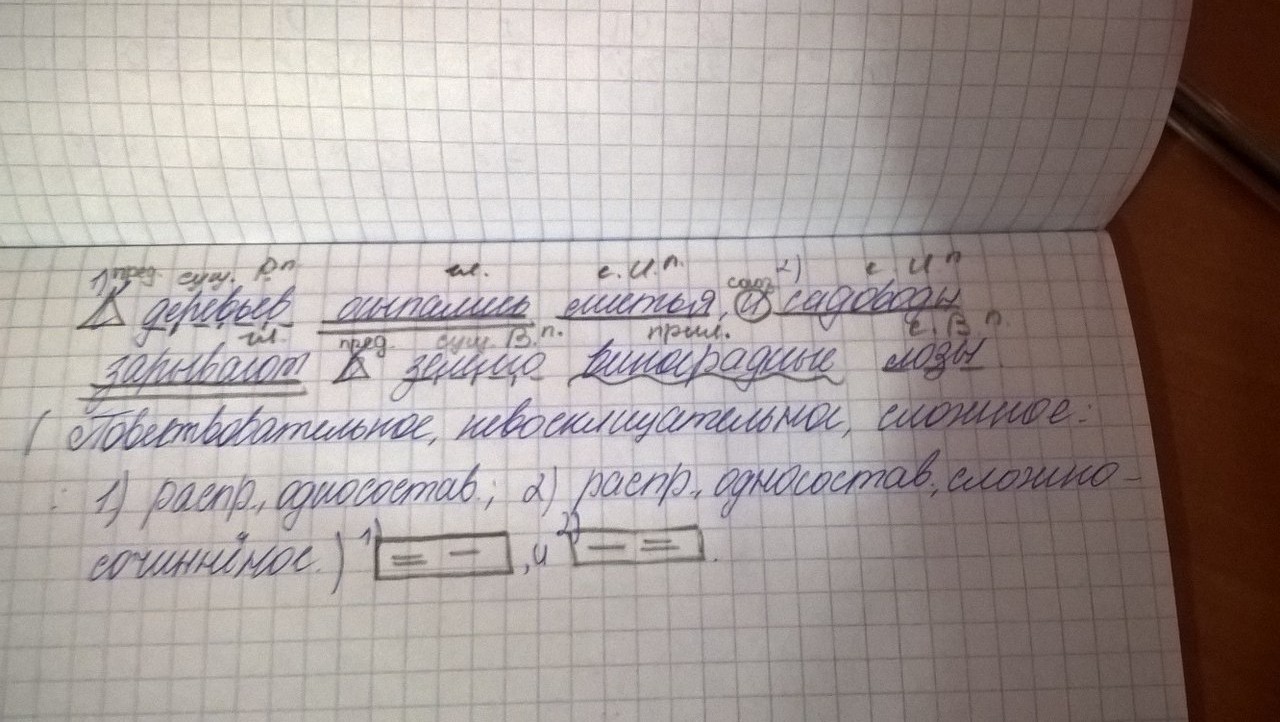 1) пред. сущ. Р.п. гл. с. И.п. союз 2) с. И.п.
деревьев осыпались листья, и садоводы
гл. пред. сущ. В.п. прил. с. В.п.
зарывают в землю виноградные лозы.
(Повествовательное, невосклицательное, сложное:
: 1) распр., односостав.; 2) распр., односостав., сложно-
сочинённое.) 1) [= –], и 2) [– =].